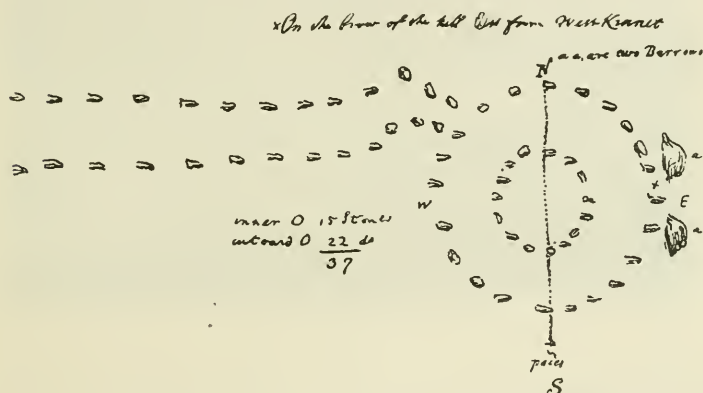 x On the brow of the hill East from West Kennet
N
a a, are two Barrows
a
x
E
W
a
inner O 15 Stones
outward O 22 do
37
paces
S